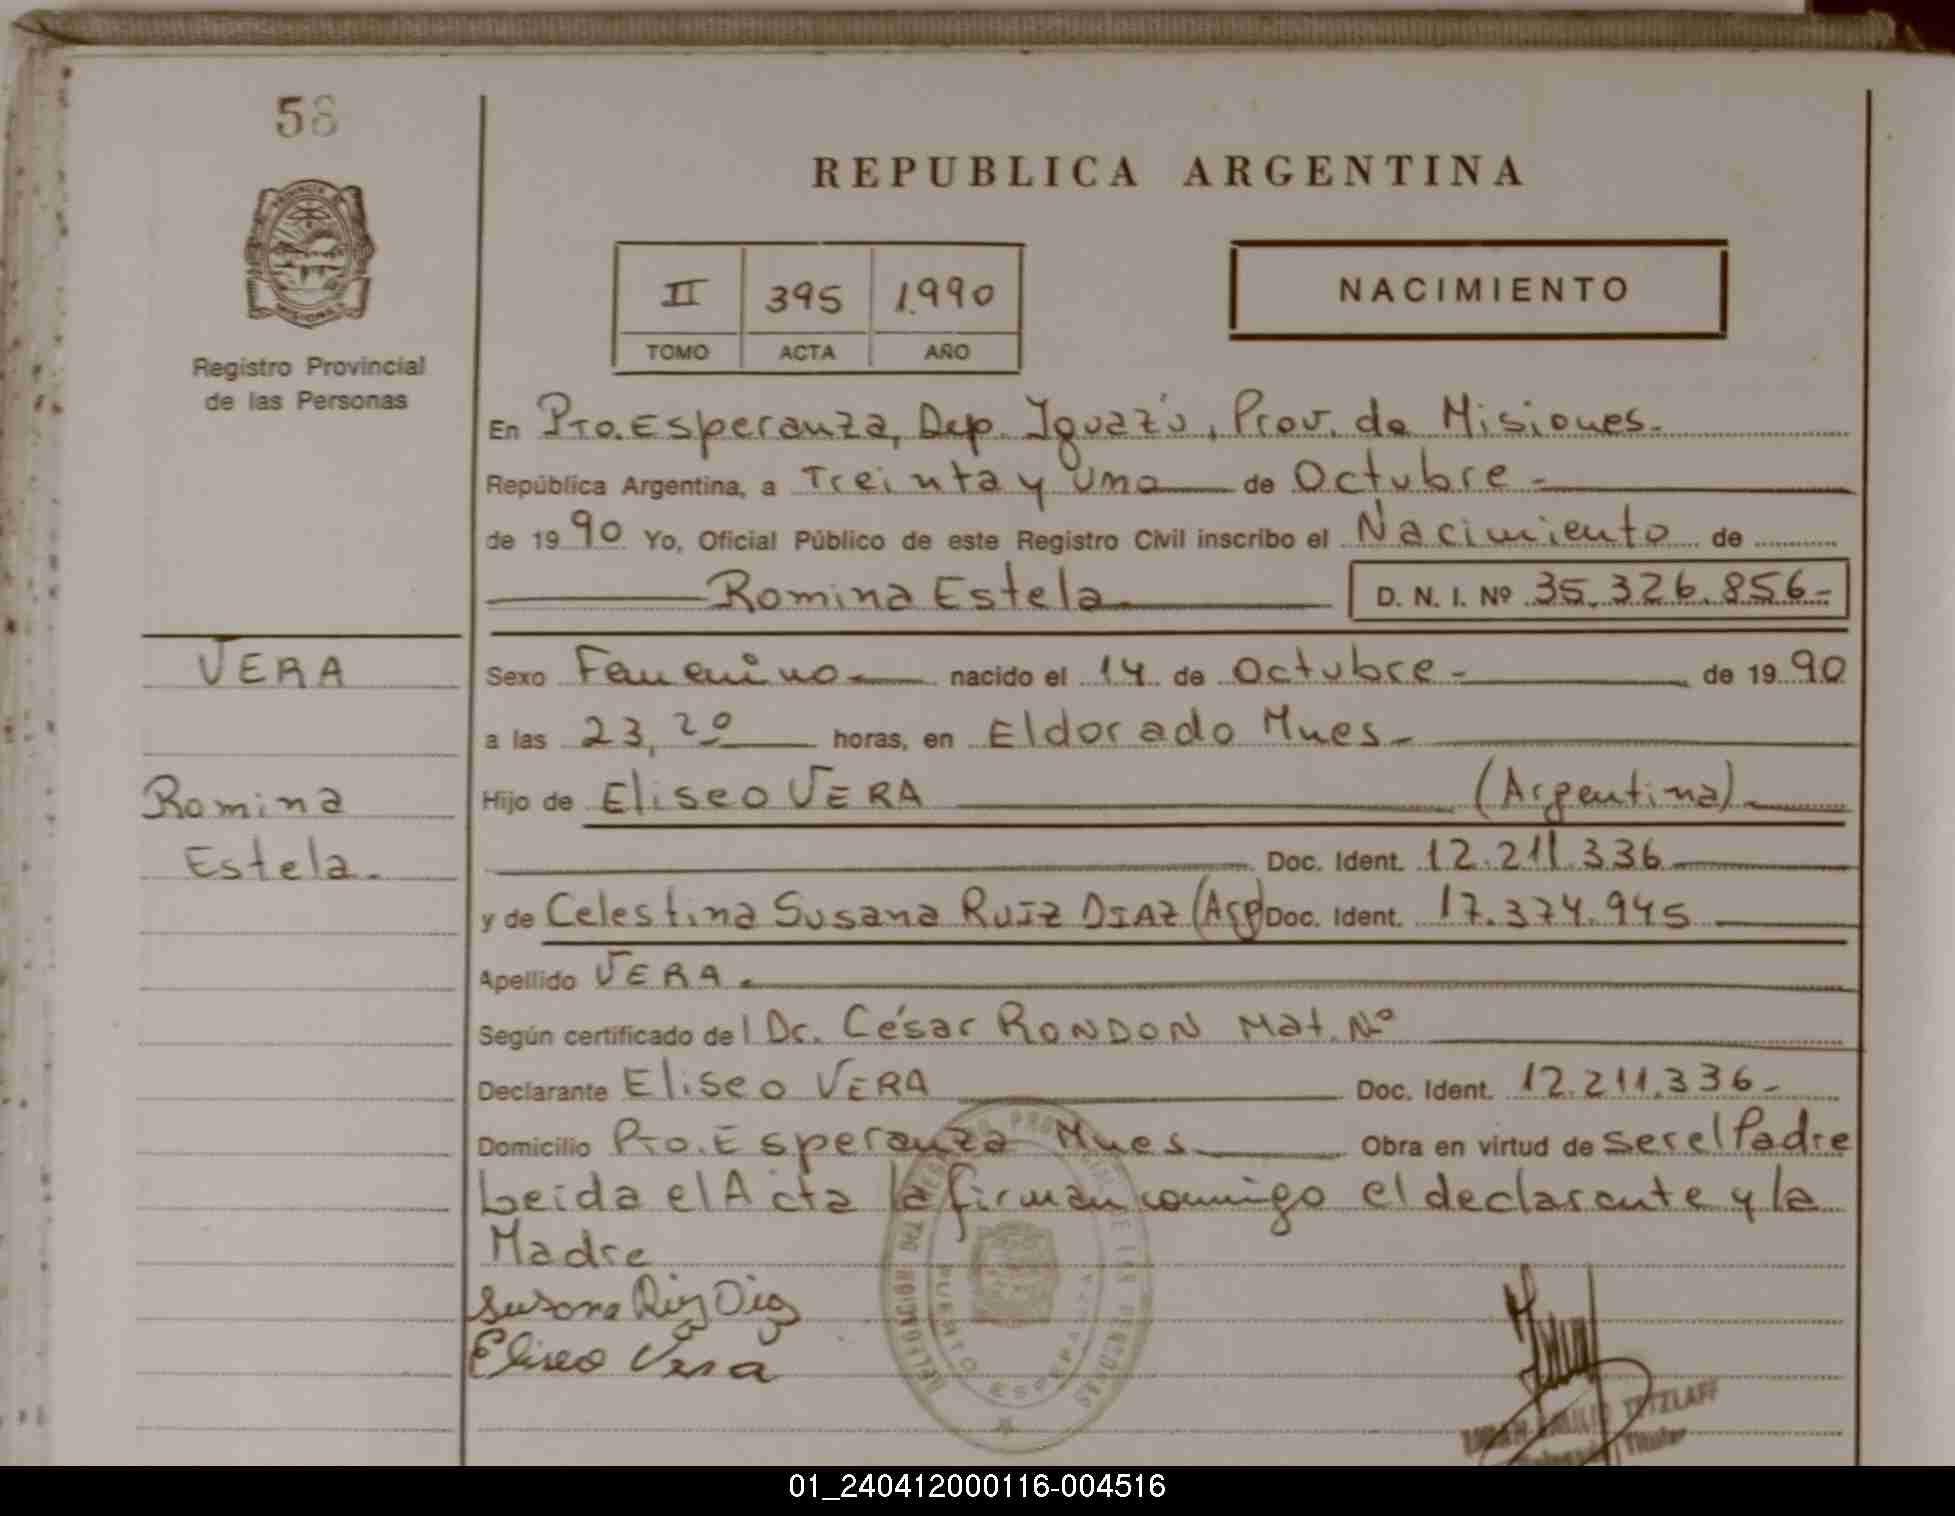 58
REPUBLICA ARGENTINA
II 395 1.990
TOMO ACTA AÑO
NACIMIENTO
Registro Provincial
de las Personas
En Pto. Esperanza, Dep. Iguazú, Prov. de Misiones.
República Argentina, a Treinta y Uno de Octubre -
de 19 90 Yo, Oficial Público de este Registro Civil inscribo el Nacimiento de
Romina Estela D. N. I. Nº 35.326.856-
VERA
Romina
Estela.
Sexo Femenino nacido el 14 de Octubre - de 19 90
a las 23,20 horas, en Eldorado Mnes -
Hijo de Eliseo VERA (Argentina)
Doc. Ident. 12.211.336
y de Celestina Susana RUIZ DIAZ (Arg) Doc. Ident. 17.374.945
Apellido VERA.
Según certificado de l Dr. César RONDON Mat. Nº
Declarante Eliseo VERA Doc. Ident. 12.211.336-
Domicilio Pto. Esperanza Mnes Obra en virtud de ser el Padre
Leida el Acta la firman conmigo el declarante y la
Madre
Susana Ruiz Diaz
Eliseo Vera
PUERTO ESPERANZA
EMILIO TETZLAFF
Titular
01_240412000116-004516